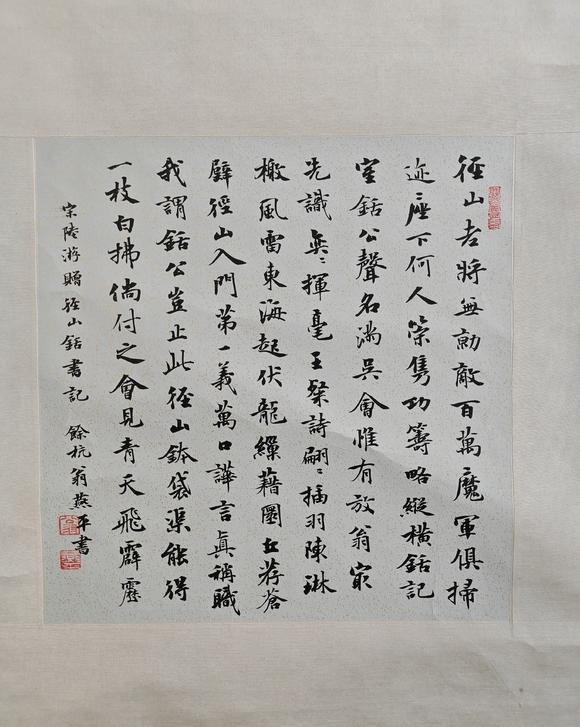 徑山老將無勍敵百萬魔軍俱掃
迹座下何人策雋功籌略縱橫銛記
室銛公聲名滿吳會惟有放翁最
先識奕〻揮毫王粲詩翩〻插羽陳琳
檄風雷東海起伏龍繅藉圜丘荐蒼
璧徑山入門第一義萬口譁言真稱職
我謂銛公豈止此徑山鉢袋渠能得
一枝白拂倘付之會見青天飛霹靂
宋陸游贈徑山銛書記 餘杭翁燕平書